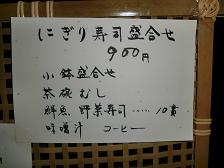 にぎり寿司盛合せ
900円
小鉢盛合せ
茶碗むし
鮮魚 野菜寿司……10貫
味噌汁 コーヒー